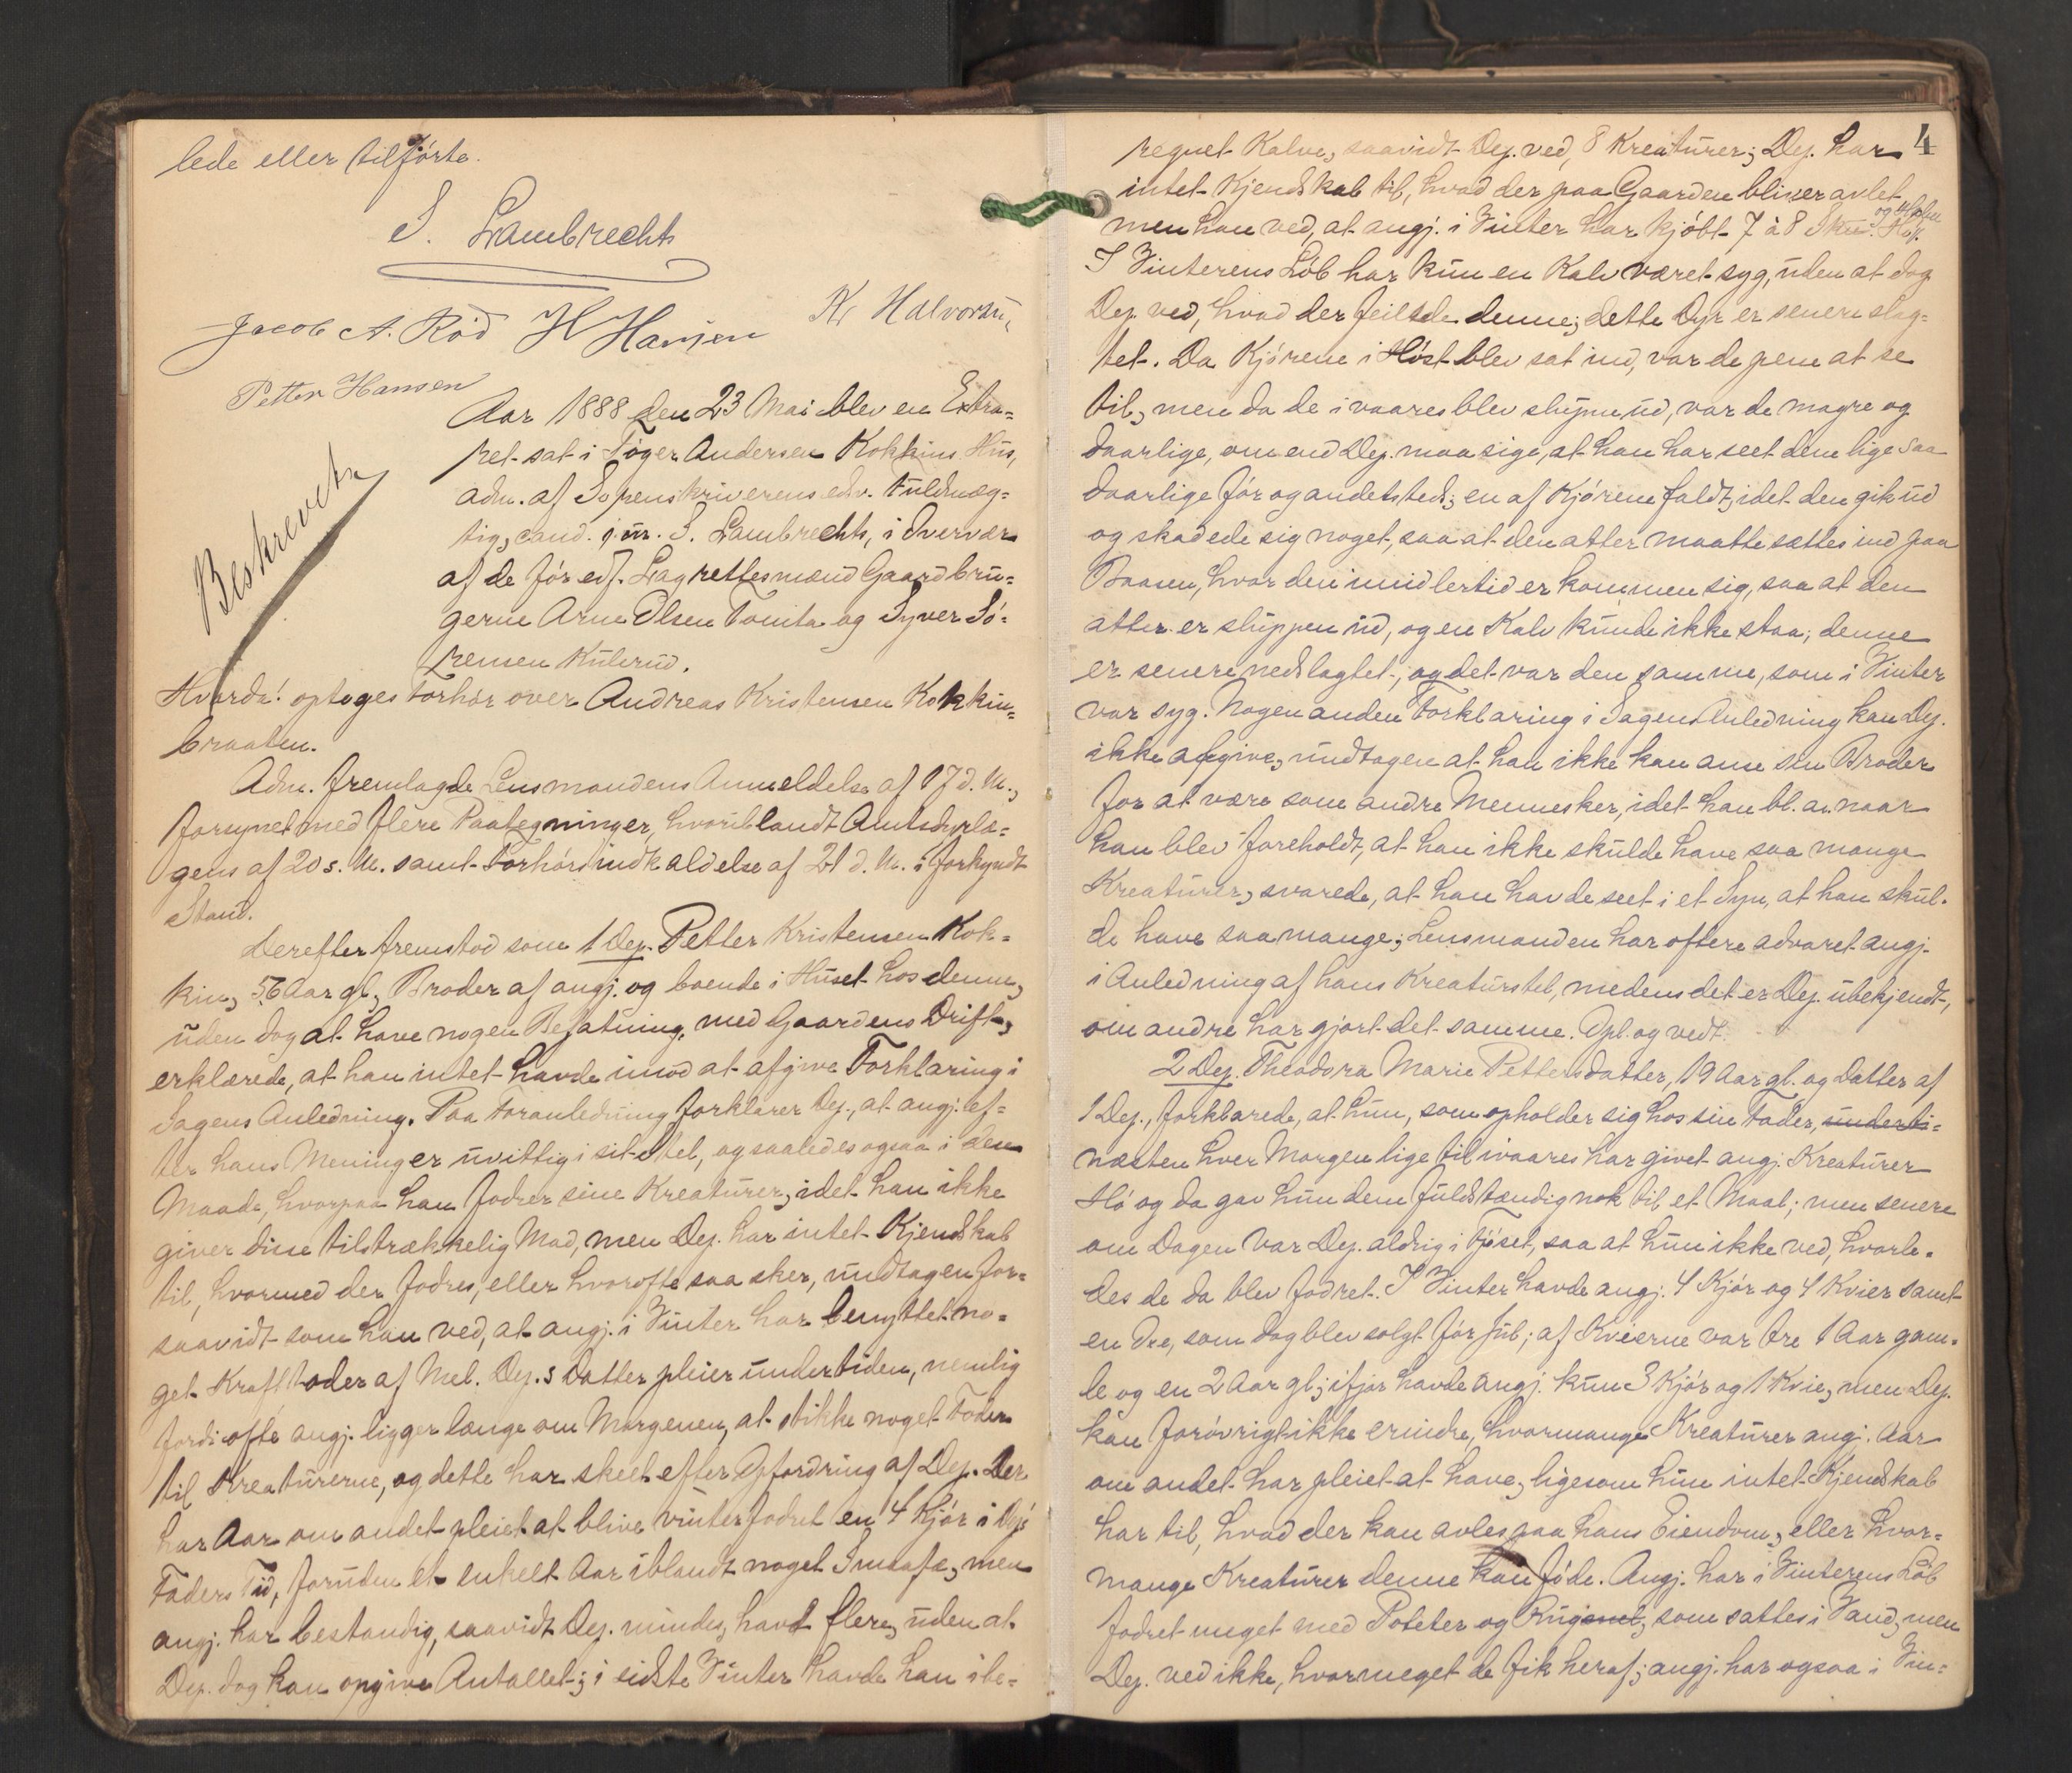 lede eller tilførte.
S. Lambrechts
Jacob A. Rød H Hansen Kr Halvorsen
Petter Hansen
Beskrevet
Aar 1888 den 23 Mai blev en Extra=
ret sat i Tøger Andersen Kokkins Hus,
adm. af Sorenskriverens edv. Fuldmæg=
tig, cand. jur. S. Lambrechts, i Overvær
af de før edf. Lagrettesmænd Gaardbru=
gerne Arne Olsen Tomta og Syver Sø=
rensen Kulerud.
Hvorda! optoges Forhør over Andreas Kristensen Kokkin=
braaten.
Adm. fremlagde Lensmandens Anmeldelse af 17 d. M.,
forsynet med flere Paategninger, hvoriblandt Amtsdyrlæ=
gens af 20 s. M. samt Forhørsindkaldelse af 21 d. M. i forkyndt
Stand.
Derefter fremstod som 1 Dep. Petter Kristensen Kok=
kin, 56 Aar gl, Broder af angj. og boende i Huset hos denne,
uden dog at have nogen Befatning med Gaardens Drift,
erklærede, at han intet havde imod at afgive Forklaring i
Sagens Anledning. Paa Foranledning forklarer Dep., at angj. ef=
ter hans Mening er uvittig i sit Stel, og saaledes ogsaa i den
Maade, hvorpaa han fodrer sine Kreaturer, idet han ikke
giver disse tilstrækkelig Mad, men Dep. har intet Kjendskab
til, hvormed der fodres, eller hvorofte saa sker, undtagen for=
saavidt som han ved, at angj. i Vinter har benyttet no=
get Kraftfoder af Mel. Dep.s Datter pleier undertiden, nemlig
fordi ofte angj. ligger længe om Morgenen, at stikke noget Foder
til Kreaturerne, og dette har skeet efter Opfordring af Dep. Der
har Aar om andet pleiet at blive vinterfodret en 4 Kjør i Dep's
Faders Tid, foruden et enkelt Aar iblandt noget Smaafæ, men
angj. har bestandig, saavidt Dep. mindes, havt flere, uden at
Dep. dog kan opgive Antallet; i sidste Vinter havde han ibe=
4
regnet Kalve, saavidt Dep. ved, 8 Kreaturer; Dep. har
intet Kjendskab til, hvad der paa Gaarden bliver avlet,
men han ved, at angj. i Vinter har kjøbt 7 à 8 Hø.
I Vinterens Løb har kun en Kalv været syg, uden at dog
Dep. ved, hvad der feilede denne; dette Dyr er senere slag=
tet. Da Kjørene i Høst blev sat ind, var de pene at se
til, men da de ivaares blev slupne ud, var de magre og
daarlige, om end Dep. maa sige, at han har seet dem lige saa
daarlige før og andetsteds; en af Kjørene faldt, idet den gik ud
og skadede sig noget, saa at den atter maatte sættes ind paa
Baasen, hvor den imidlertid er kommen sig, saa at den
atter er sluppen ud, og en Kalv kunde ikke staa, denne
er senere nedslagtet, og det var den samme, som i Vinter
var syg. Nogen anden Forklaring i Sagens Anledning kan Dep.
ikke afgive, undtagen at han ikke kan anse sin Broder
for at være som andre Mennesker, idet han bl. a. naar
han blev foreholdt, at han ikke skulde have saa mange
Kreaturer, svarede, at han havde seet i et Syn, at han skul=
de have saa mange; Lensmanden har oftere advaret angj.
i Anledning af hans Kreaturstel, medens det er Dep. ubekjendt,
om andre har gjort det samme. Opl. og vedt.
2 Dep. Theodora Marie Pettersdatter, 19 Aar gl. og Datter af
1 Dep., forklarede, at hun, som opholder sig hos sin Fader, underti=
næsten hver Morgen lige til ivaares har givet angj. Kreaturer
Hø og da gav hun dem fuldstændig nok til et Maal; men senere
om Dagen var Dep. aldrig i Fjøset, saa at hun ikke ved, hvorle=
des de da blev fodret. I Vinter havde angj. 4 Kjør og 4 Kvier samt
en Oxe, som dog blev solgt før Jul; af Kvierne var tre 1 Aar gam=
le og en 2 Aar gl; ifjor havde angj. kun 3 Kjør og 1 Kvie, men Dep.
kan forøvrigt ikke erindre, hvormange Kreaturer angj. Aar
om andet har pleiet at have, ligesom hun intet Kjendskab
har til, hvad der kan avles paa hans Eiendom, eller hvor=
mange Kreaturer denne kan føde. Angj. har i Vinterens Løb
fodret meget med Poteter og Rugmel, som sattes i Vand, men
Dep. ved ikke, hvormeget de fik heraf; angj. har ogsaa i Vin=